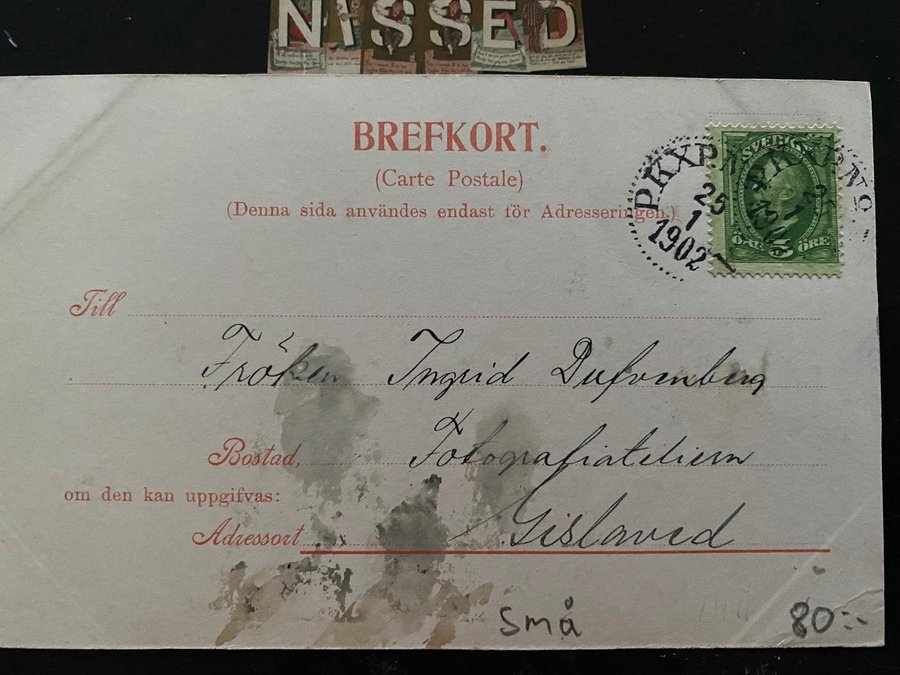 NISSED
BREFKORT.
(Carte Postale)
(Denna sida användes endast för Adresseringen.)
PKXP.N
25
1
1902
PKXP.N
SVERIGE
5 ÖRE
Till
Fröken Ingrid Dufvenberg
Bostad,
Fotografiateliern
om den kan uppgifvas:
Adressort
Gislaved
små
80:-